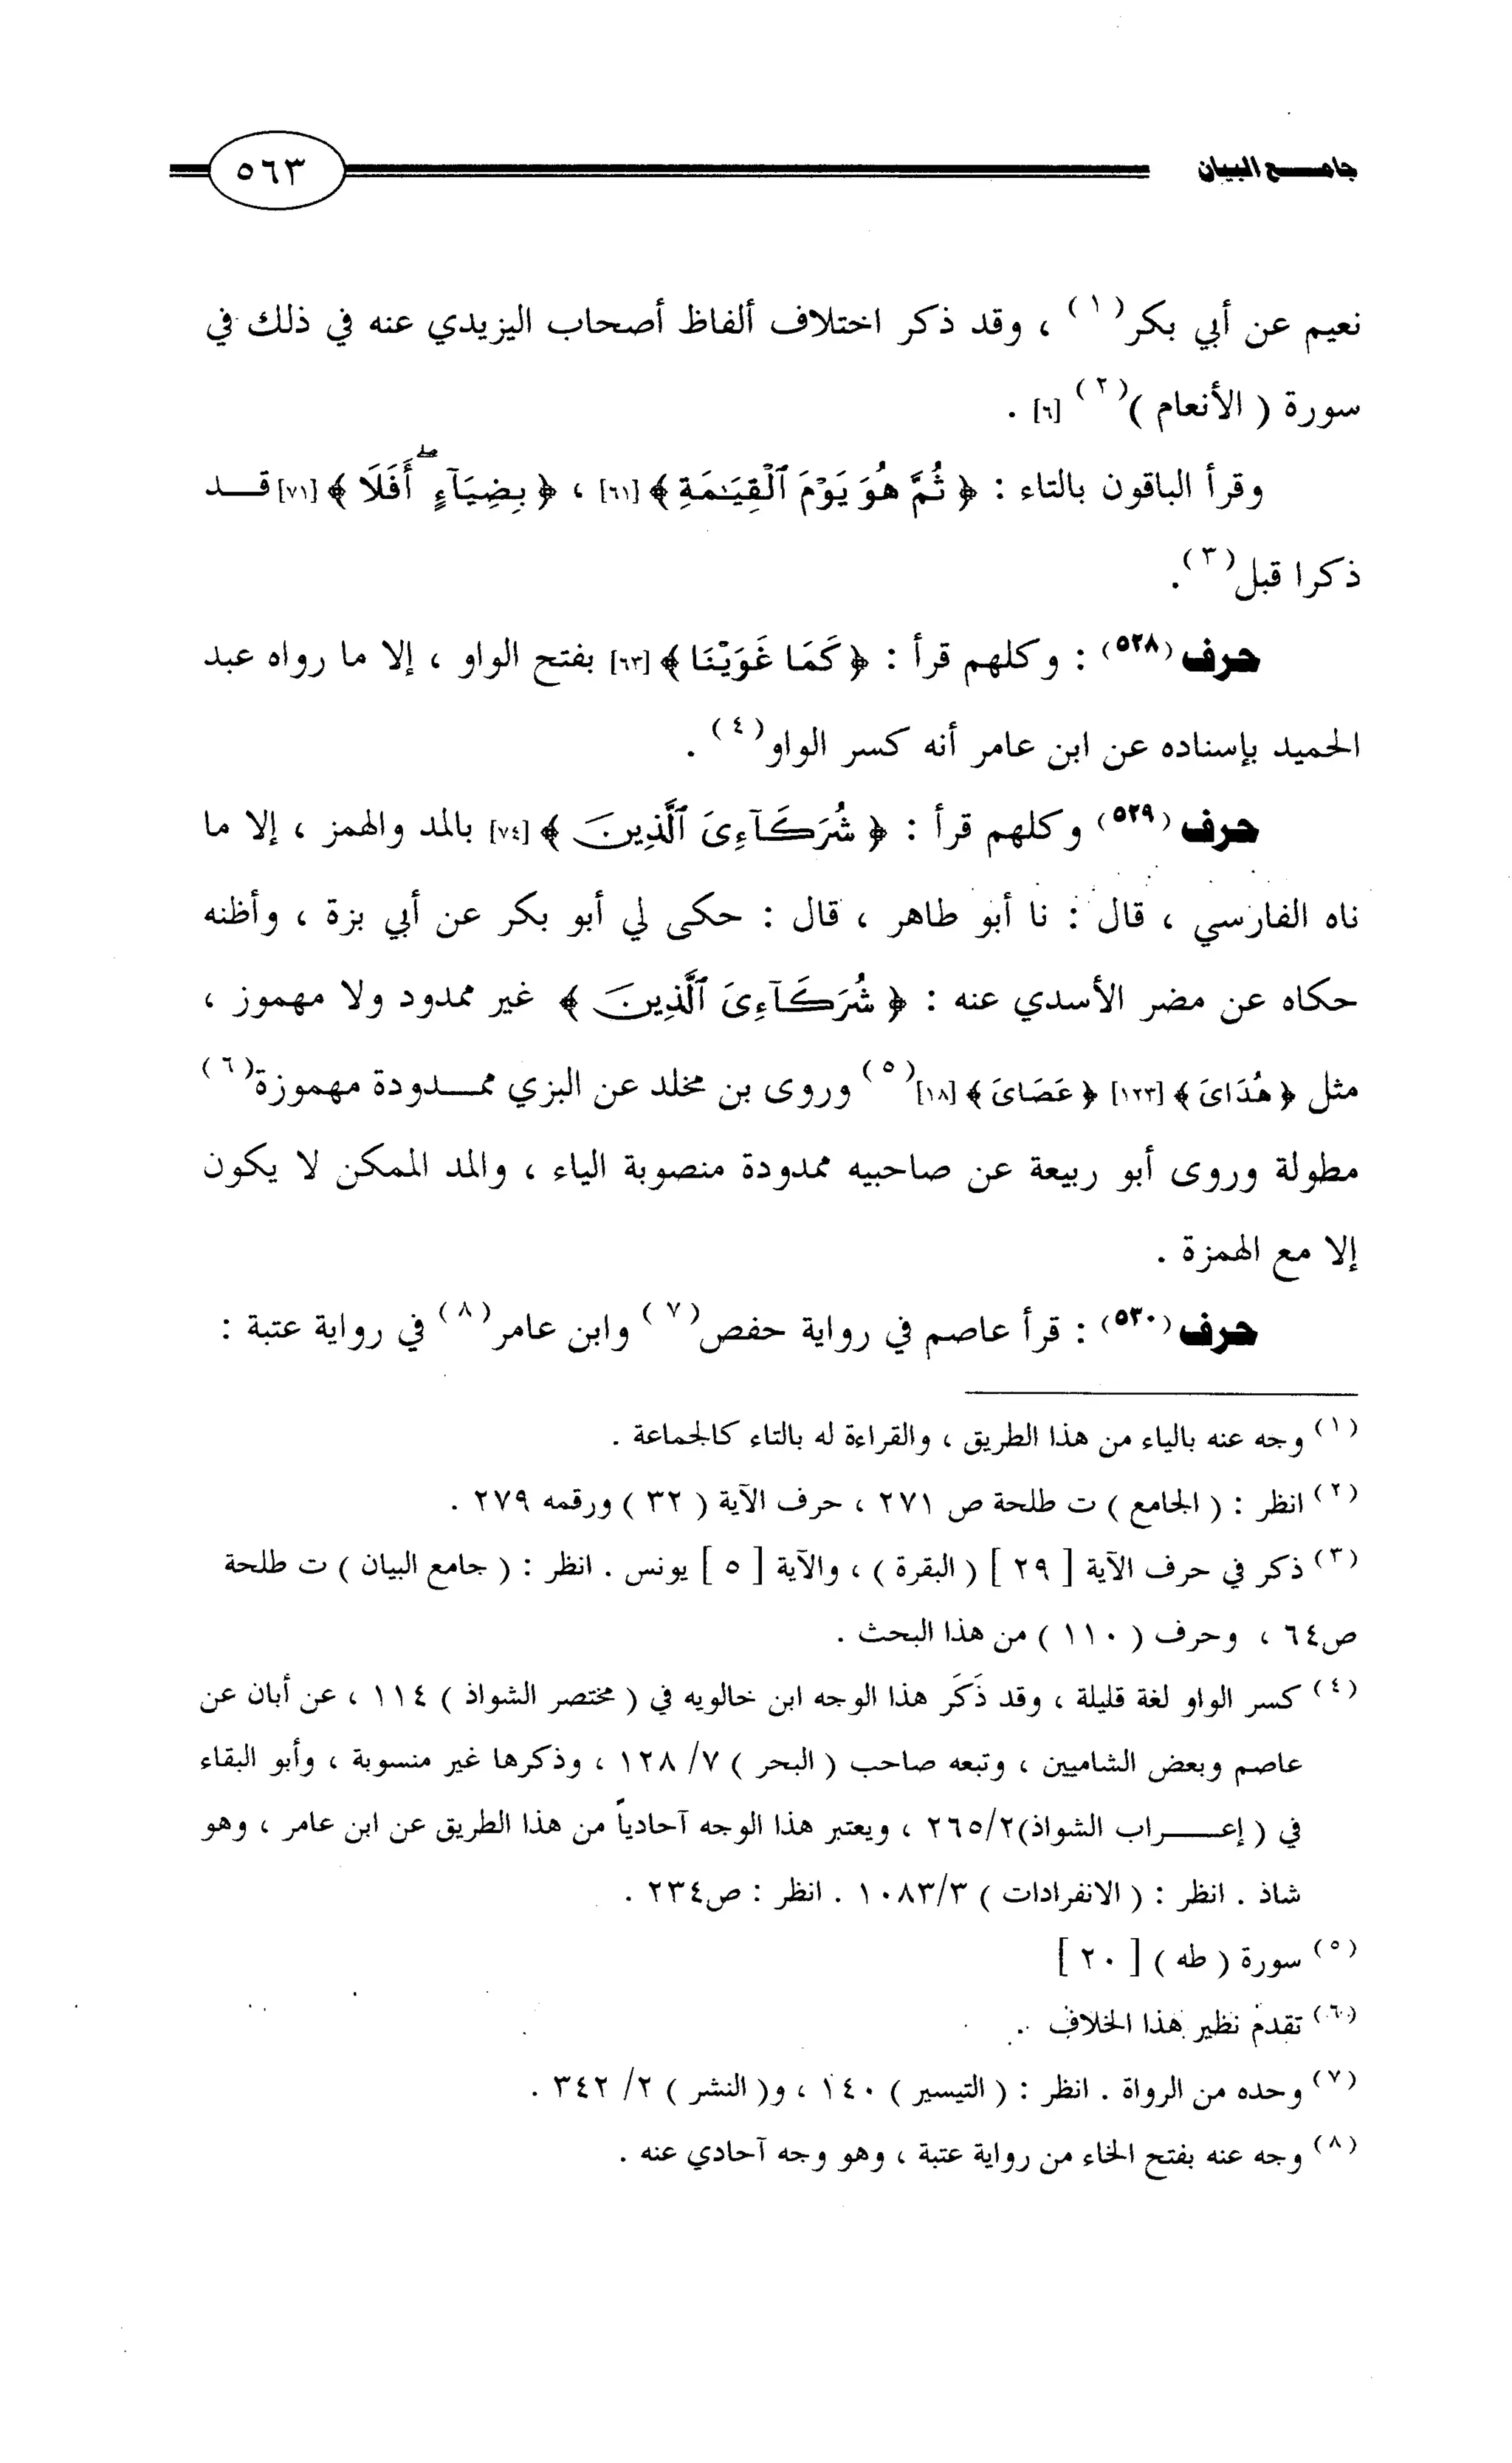 جامع البيان
٥٦٣
نعيم عن أبي بكر(١) ، وقد ذكر اختلاف ألفاظ أصحاب اليزيدي عنه في ذلك في
سورة ( الأنعام )(٢) [٦] .
وقرأ الباقون بالتاء : ﴿ ثُمَّ هُوَ يَوْمَ ٱلْقِيَٰمَةِ ﴾[٦١] ، ﴿ بِضِيَآءٍ ۖ أَفَلَا ﴾[٧١] قد
ذكرا قبل(٣).
حرف(٥٢٨) : وكلهم قرأ : ﴿ كَمَا غَوَيْنَا ﴾[٦٣] بفتح الواو ، إلا ما رواه عبد
الحميد بإسناده عن ابن عامر أنه كسر الواو(٤) .
حرف(٥٢٩) وكلهم قرأ : ﴿ شُرَكَآءِىَ ٱلَّذِينَ ﴾[٧٤] بالمد والهمز ، إلا ما
ناه الفارسي ، قال : نا أبو طاهر ، قال : حكى لي أبو بكر عن أبي بزة ، وأظنه
حكاه عن مضر الأسدي عنه : ﴿ شُرَكَآءِىَ ٱلَّذِينَ ﴾ غير ممدود ولا مهموز ،
مثل ﴿ هُدَاىَ ﴾[١٢٣] ﴿ عَصَاىَ ﴾[١٨](٥) وروى بن مخلد عن البزي ممدودة مهموزة(٦)
مطولة وروى أبو ربيعة عن صاحبيه ممدودة منصوبة الياء ، والمد الممكن لا يكون
إلا مع الهمزة .
حرف(٥٣٠) : قرأ عاصم في رواية حفص(٧) وابن عامر(٨) في رواية عتبة :
(١) وجه عنه بالياء من هذا الطريق ، والقراءة له بالتاء كالجماعة .
(٢) انظر : ( الجامع ) ت طلحة ص ٢٧١ ، حرف الآية ( ٣٢ ) ورقمه ٢٧٩ .
(٣) ذكر في حرف الآية [ ٢٩ ] ( البقرة ) ، والآية [ ٥ ] يونس . انظر : ( جامع البيان ) ت طلحة
ص٦٤ ، وحرف ( ١١٠ ) من هذا البحث .
(٤) كسر الواو لغة قليلة ، وقد ذَكَر هذا الوجه ابن خالويه في ( مختصر الشواذ ) ١١٤ ، عن أبان عن
عاصم وبعض الشاميين ، وتبعه صاحب ( البحر ) ٧/ ١٢٨ ، وذكرها غير منسوبة ، وأبو البقاء
في ( إعراب الشواذ)٢/ ٢٦٥ ، ويعتبر هذا الوجه آحادياً من هذا الطريق عن ابن عامر ، وهو
شاذ . انظر : ( الانفرادات ) ٣/ ١٠٨٣ . انظر : ص٢٣٤ .
(٥) سورة ( طه ) [ ٢٠ ]
(٦) تقدم نظير هذا الخلاف .
(٧) وحده من الرواة . انظر : ( التيسير ) ١٤٠ ، و( النشر ) ٢/ ٣٤٢ .
(٨) وجه عنه بفتح الخاء من رواية عتبة ، وهو وجه آحادي عنه .